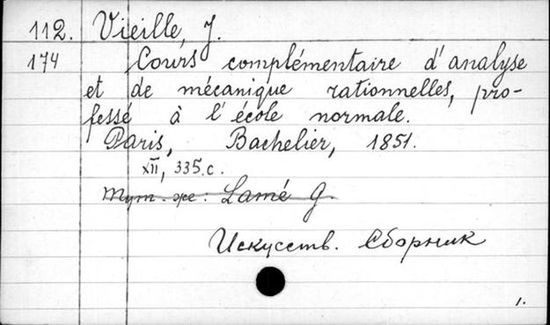 112. Vieille, J.
174 Cours complémentaire d'analyse
et de mécanique rationnelles, pro-
fessé à l'école normale.
Paris, Bachelier, 1851.
XII, 335 с.
Тут-же: Lamé G.
Искусств. Сборник
1.